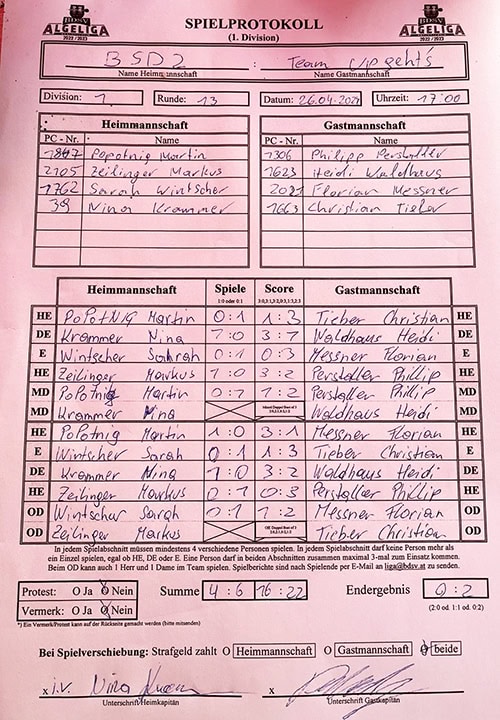 BDSV ALGELIGA 2022/2023 SPIELPROTOKOLL BDSV ALGELIGA 2022/2023
(1. Division)
BSD2 : Team up geht's
Name Heimmannschaft Name Gastmannschaft
Division: 1 Runde: 13 Datum: 26.04.2021 Uhrzeit: 17:00
Heimmannschaft Gastmannschaft
PC - Nr. Name PC - Nr. Name
Popotnig Martin 1306 Philipp Perstaller
2105 Zeilinger Markus 1623 Heidi Waldhaus
1762 Sarah Wintscher 2021 Florian Messner
39 Nina Krammer 1663 Christian Tieber
Heimmannschaft Spiele Score Gastmannschaft
1:0 oder 0:1 3:0,3:1,3:2,0:3,1:3,2:3
HE PoPotNIG Martin 0:1 1:3 Tieber Christian HE
DE Krammer Nina 1:0 3:1 Waldhaus Heidi DE
E Wintscher Sahrah 0:1 0:3 Messner Florian E
HE Zeilinger Markus 1:0 3:2 Perstaller Phillip HE
MD PoPotnig Martin 0:1 1:2 Perstaller Phillip MD
MD Krammer Nina Mixed Doppel Best of 3 Waldhaus Heidi MD
HE Popotnig Martin 1:0 3:1 Messner Florian HE
E Wintscher Sarah 0:1 1:3 Tieber Christian E
DE Krammer Nina 1:0 3:2 Waldhaus Heidi DE
HE Zeilinger Markus 0:1 0:3 Perstaller Phillip HE
OD Wintscher Sarah 0:1 1:2 Messner Florian OD
OD Zeilinger Markus Off. Doppel Best of 3 Tieber Christian OD
In jedem Spielabschnitt müssen mindestens 4 verschiedene Personen spielen. In jedem Spielabschnitt darf keine Person mehr als
ein Einzel spielen, egal ob HE, DE oder E. Eine Person darf in beiden Abschnitten zusammen maximal 3-mal zum Einsatz kommen.
Beim OD kann auch 1 Herr und 1 Dame im Team spielen. Spielberichte sind nach Spielende per E-Mail an liga@bdsv.at zu senden.
Protest: O Ja O Nein Summe 4:6 16:22 Endergebnis 0:2
Vermerk: O Ja O Nein (2:0 od. 1:1 od. 0:2)
*) Ein Vermerk/Protest kann auf der Rückseite gemacht werden (bitte mitsenden)
Bei Spielverschiebung: Strafgeld zahlt O Heimmannschaft O Gastmannschaft O beide
x i.V. Nina x
Unterschrift Heimkapitän Unterschrift Gastkapitän